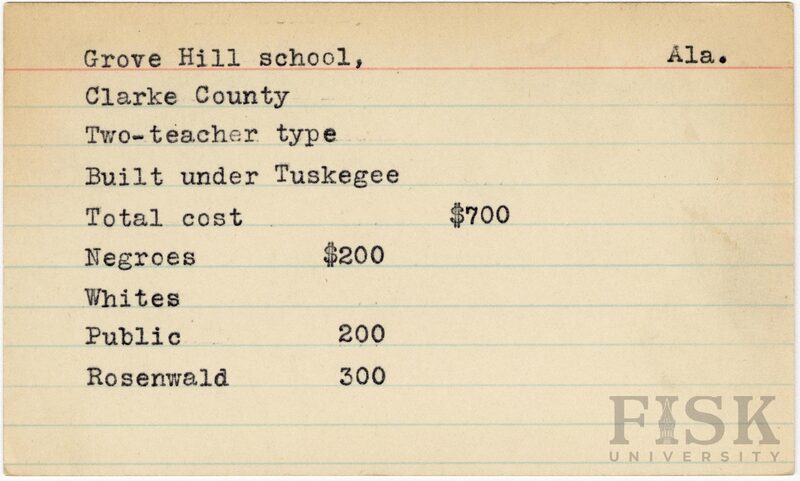 Grove Hill school, Ala.
Clarke County
Two-teacher type
Built under Tuskegee
Total cost $700
Negroes $200
Whites
Public 200
Rosenwald 300
FISK
UNIVERSITY